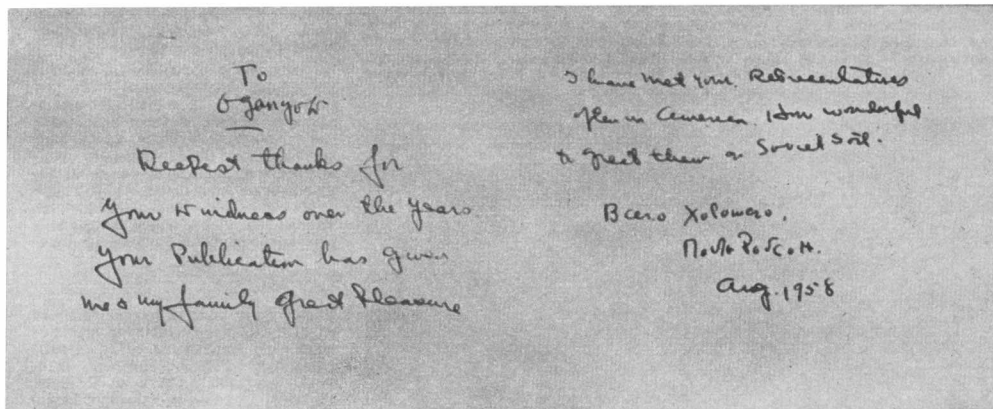 To
Oganyok
Deepest thanks for
your kindness over the years.
Your Publication has given
me & my family great pleasure
I have met your Representatives
often in America. How wonderful
to greet them on Soviet soil.
Всего Хорошего,
Поль Робсон.
Aug. 1958